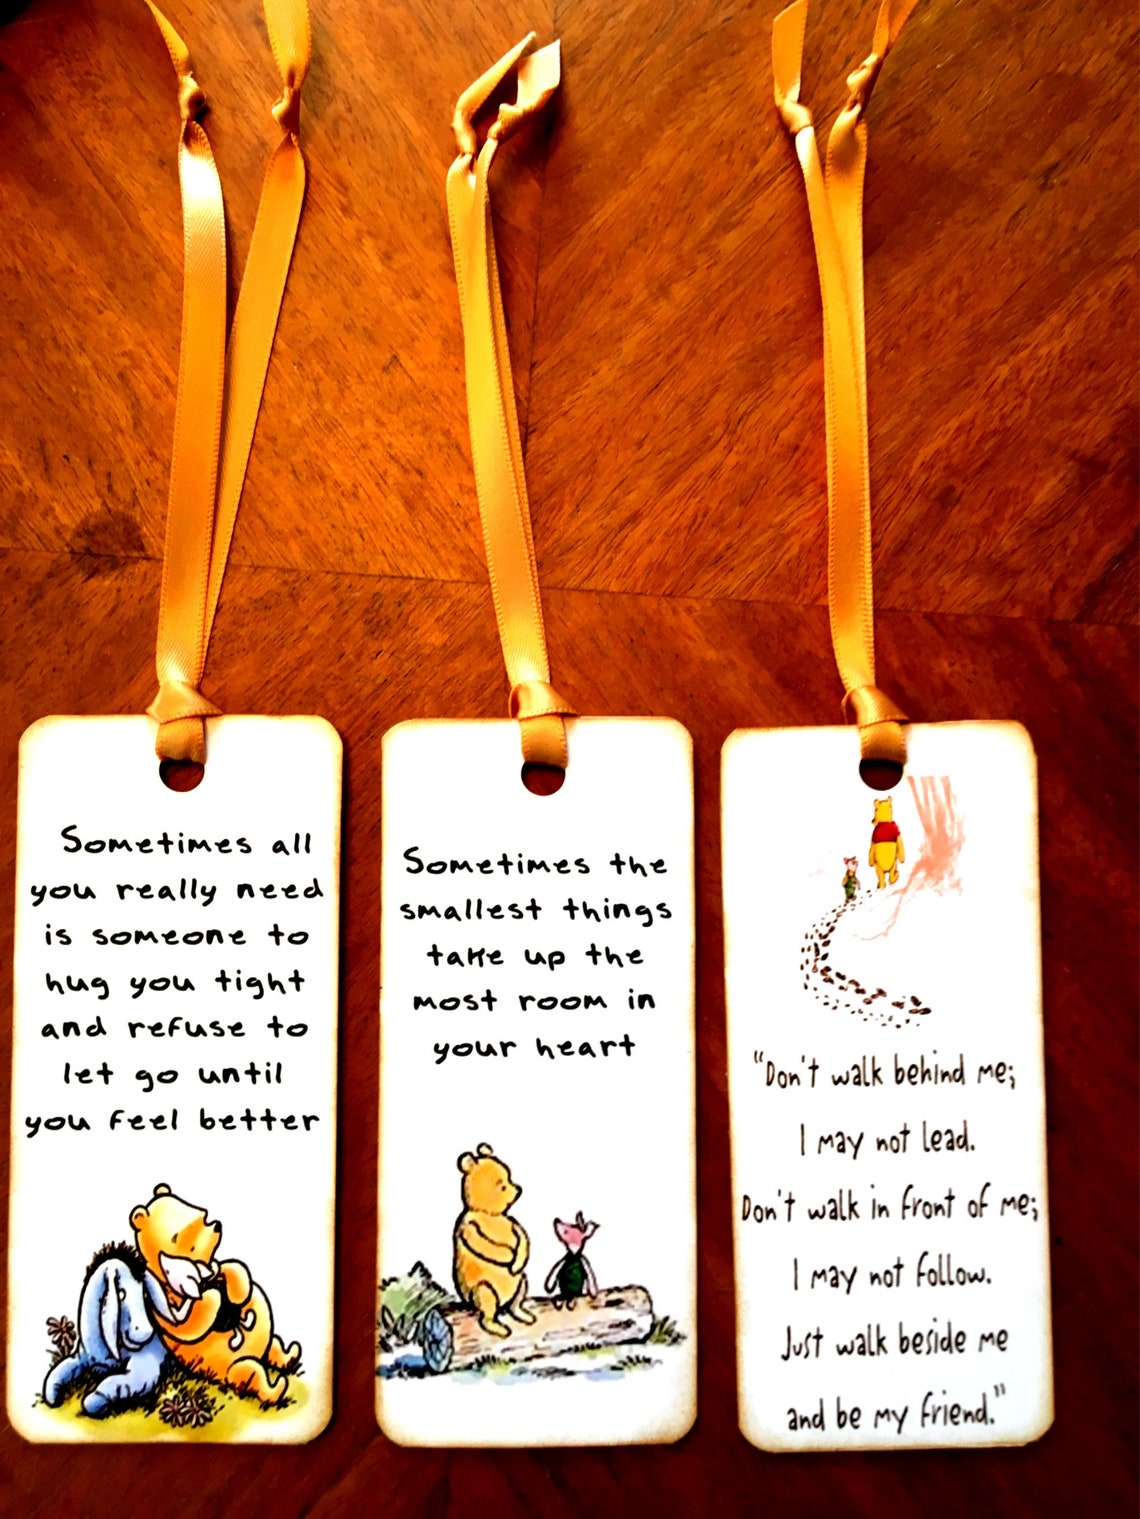 Sometimes all
you really need
is someone to
hug you tight
and refuse to
let go until
you feel better
Sometimes the
smallest things
take up the
most room in
your heart
"Don't walk behind me;
I may not lead.
Don't walk in front of me;
I may not follow.
Just walk beside me
and be my friend."